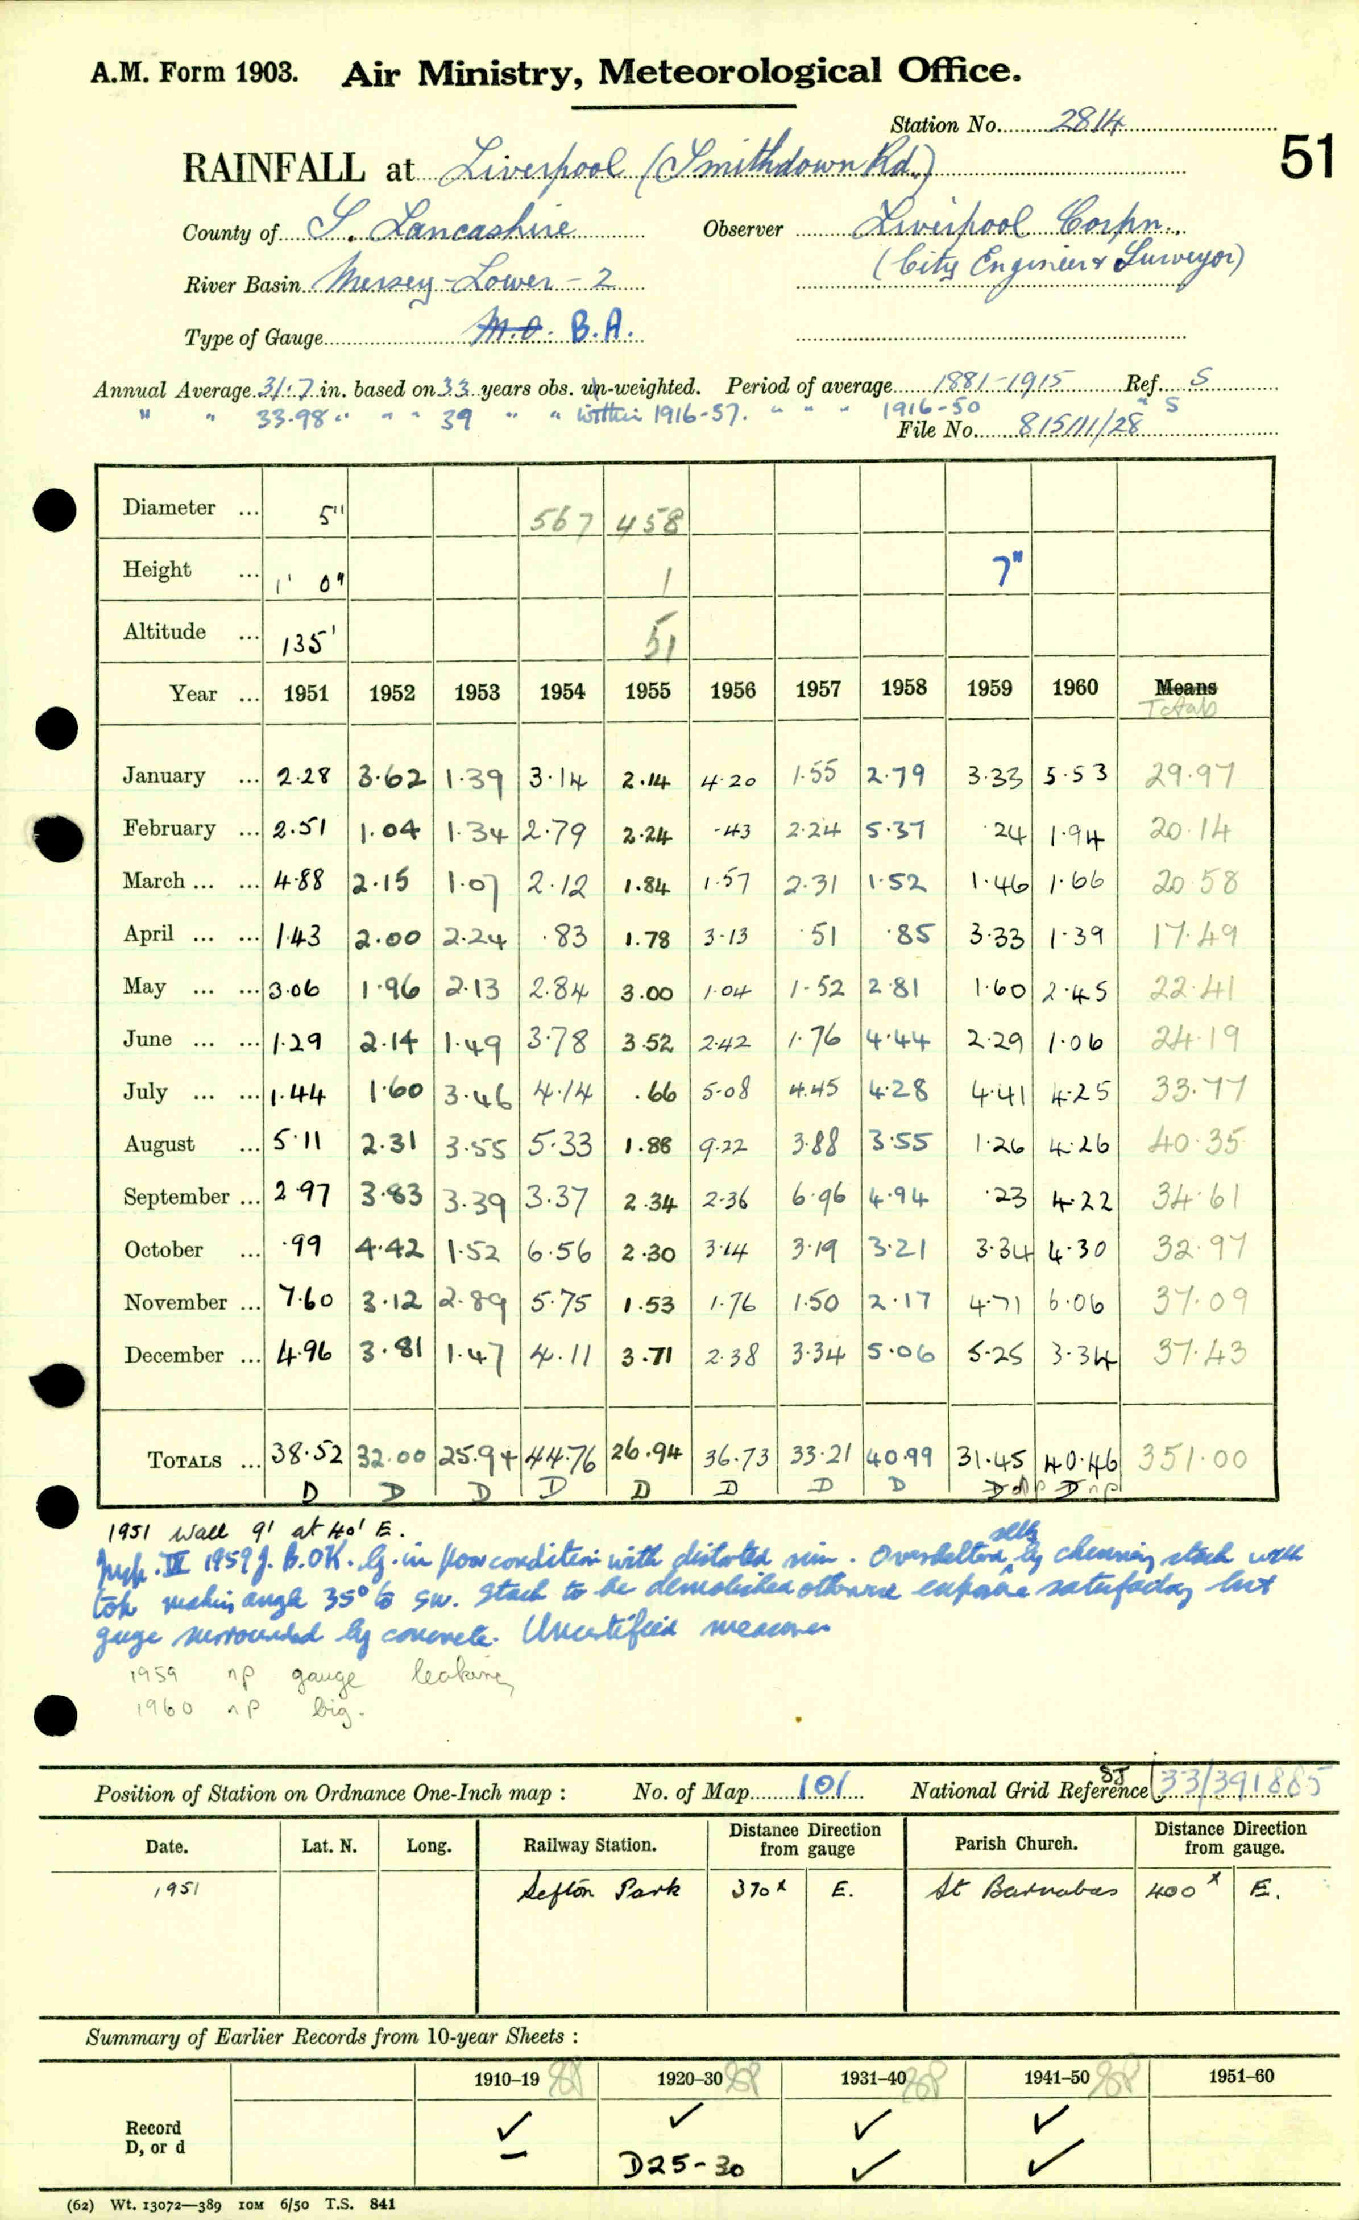 A.M. Form 1903. Air Ministry, Meteorological Office.
Station No. 2814
51
RAINFALL at Liverpool (Smithdown Rd.)
County of S. Lancashire Observer Liverpool Corpn.
(City Engineer & Surveyor)
River Basin Mersey-Lower-2
Type of Gauge M.O. B.A.
Annual Average 31.7 in. based on 33 years obs. un-weighted. Period of average 1881-1915 Ref. S
" " 33.98 " " " 39 " " within 1916-57. " " " 1916-50 " S
File No. 815111/28
Diameter ... 5" 567 458
Height ... 1' 0" 1 7"
Altitude ... 135' 51
Year ... 1951 1952 1953 1954 1955 1956 1957 1958 1959 1960 Means
Totals
January ... 2.28 3.62 1.39 3.14 2.14 4.20 1.55 2.79 3.33 5.53 29.97
February ... 2.51 1.04 1.34 2.79 2.24 .43 2.24 5.37 .24 1.94 20.14
March ... ... 4.88 2.15 1.07 2.12 1.84 1.57 2.31 1.52 1.46 1.66 20.58
April ... ... 1.43 2.00 2.24 .83 1.78 3.13 .51 .85 3.33 1.39 17.49
May ... ... 3.06 1.96 2.13 2.84 3.00 1.04 1.52 2.81 1.60 2.45 22.41
June ... ... 1.29 2.14 1.49 3.78 3.52 2.42 1.76 4.44 2.29 1.06 24.19
July ... ... 1.44 1.60 3.46 4.14 .66 5.08 4.45 4.28 4.41 4.25 33.77
August ... 5.11 2.31 3.55 5.33 1.88 9.22 3.88 3.55 1.26 4.26 40.35
September ... 2.97 3.83 3.39 3.37 2.34 2.36 6.96 4.94 .23 4.22 34.61
October ... .99 4.42 1.52 6.56 2.30 3.14 3.19 3.21 3.34 4.30 32.97
November ... 7.60 3.12 2.89 5.75 1.53 1.76 1.50 2.17 4.71 6.06 37.09
December ... 4.96 3.81 1.47 4.11 3.71 2.38 3.34 5.06 5.25 3.34 37.43
TOTALS ... 38.52 32.00 25.94 44.76 26.94 36.73 33.21 40.99 31.45 40.46 351.00
D D D D D D D D D np D np
1951 Wall 9' at 40' E.
Insp. IX 1959 J. B.OK. G. in poor condition with distorted rim. Oversheltered by chimney stack with
top making angle 35° to SW. Stack to be demolished otherwise exposure satisfactory but
gauge surrounded by concrete. Uncertified measure
1959 np gauge leaking
1960 np big.
Position of Station on Ordnance One-Inch map : No. of Map 101 National Grid Reference SJ 33/391885
Date. Lat. N. Long. Railway Station. Distance Direction from gauge Parish Church. Distance Direction from gauge.
1951 Sefton Park 370x E. St Barnabas 400x E.
Summary of Earlier Records from 10-year Sheets :
1910–19 1920–30 1931–40 1941–50 1951–60
Record ✓ ✓ ✓ ✓
D, or d – D25-30 ✓ ✓
(62) Wt. 13072—389 10M 6/50 T.S. 841